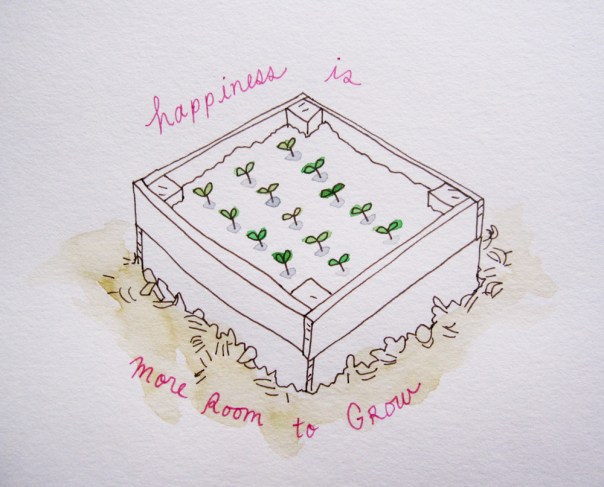 happiness is
more Room to Grow